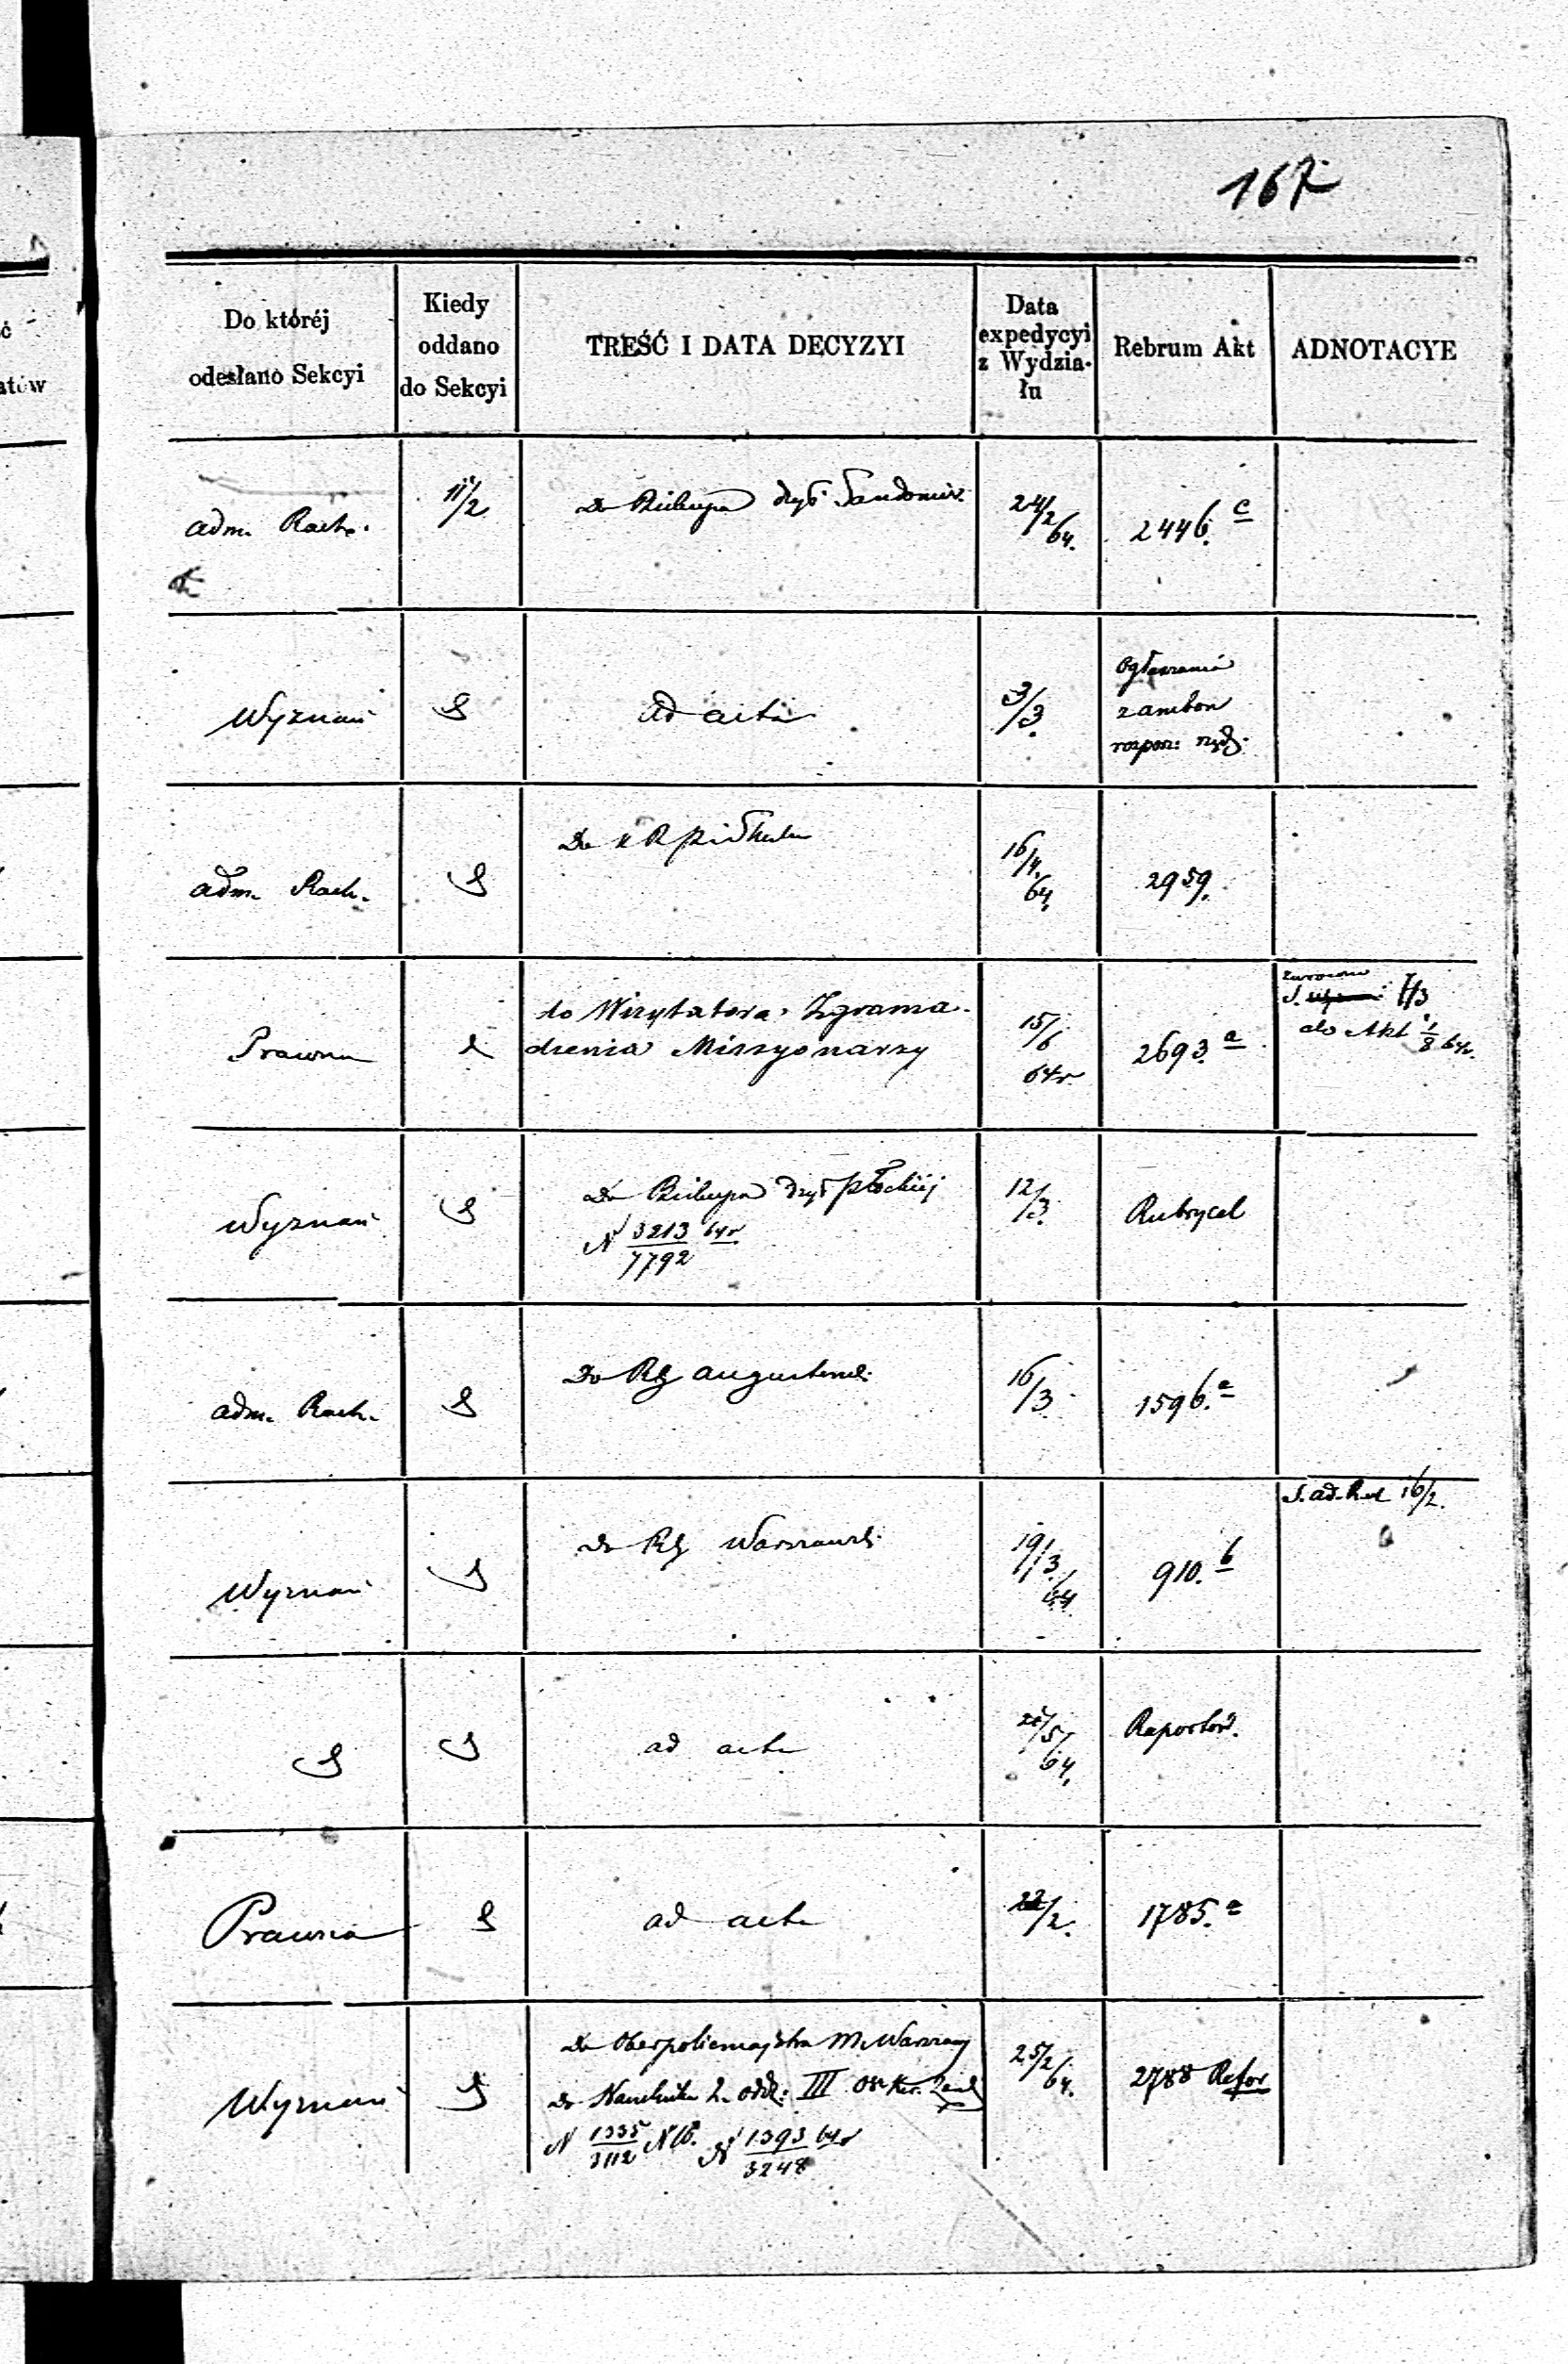 167
Do któréj
odesłano Sekcyi
Kiedy
oddano
do Sekcyi
TREŚĆ I DATA DECYZYI
Data
expedycyi
z Wydzia-
łu
Rebrum Akt
ADNOTACYE
adm. Rach.
11/2
Do Biskupa dyec. Sandomir.
24/2
64.
2446. c
Wyznań
ad acta
3/3.
Ogłaszania
z ambon
rozpor: rząd.
adm. Rach.
Do
16/4.
64.
2959.
Prawna
do Wizytatora Zgroma-
dzenia Missyonarzy
15/6
64 r
2693. a
7/3
do Akt 1/8 64 r.
Wyznań
Do Biskupa Płockiéj
N 3213/7792 64 r
12/3.
Rubrycel
adm. Rach.
Do RG Augustows.
16/3.
1596. a
Wyznań
do RG Warszaws.
19/3.
64
910. b
16/2.
ad acta
5/
64.
Raportów.
Prawna
ad acta
/2.
1785. a
Wyznań
Do Oberpolicmajstra M. Warszawy
Do Naczelnika III
N 1335/3112 N 1393/3248 64 r
25/2
64.
2788 Refor